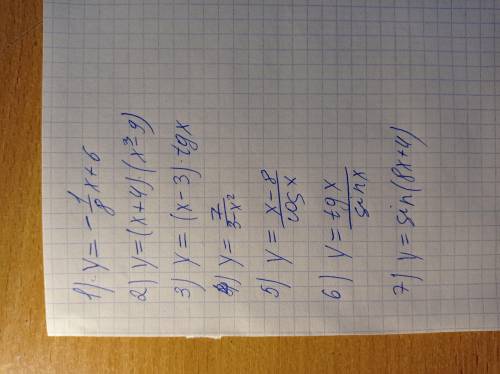 1) y = -1/8 x + 6
2) y = (x+4)(x³-9)
3) y = (x-3) · tgx
4) y = 7/(3-x²)
5) y = (x-8)/(cos x)
6) y = (tg x)/(sin x)
7) y = sin(8x+4)